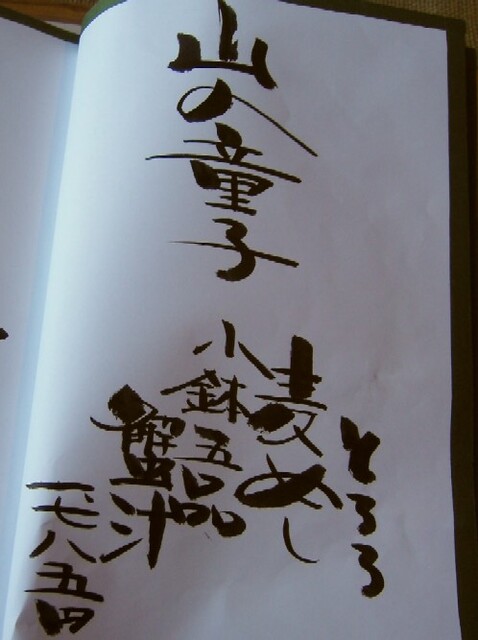 山の童子
とろろ
麦めし
小鉢五品
蟹汁
一七八五円